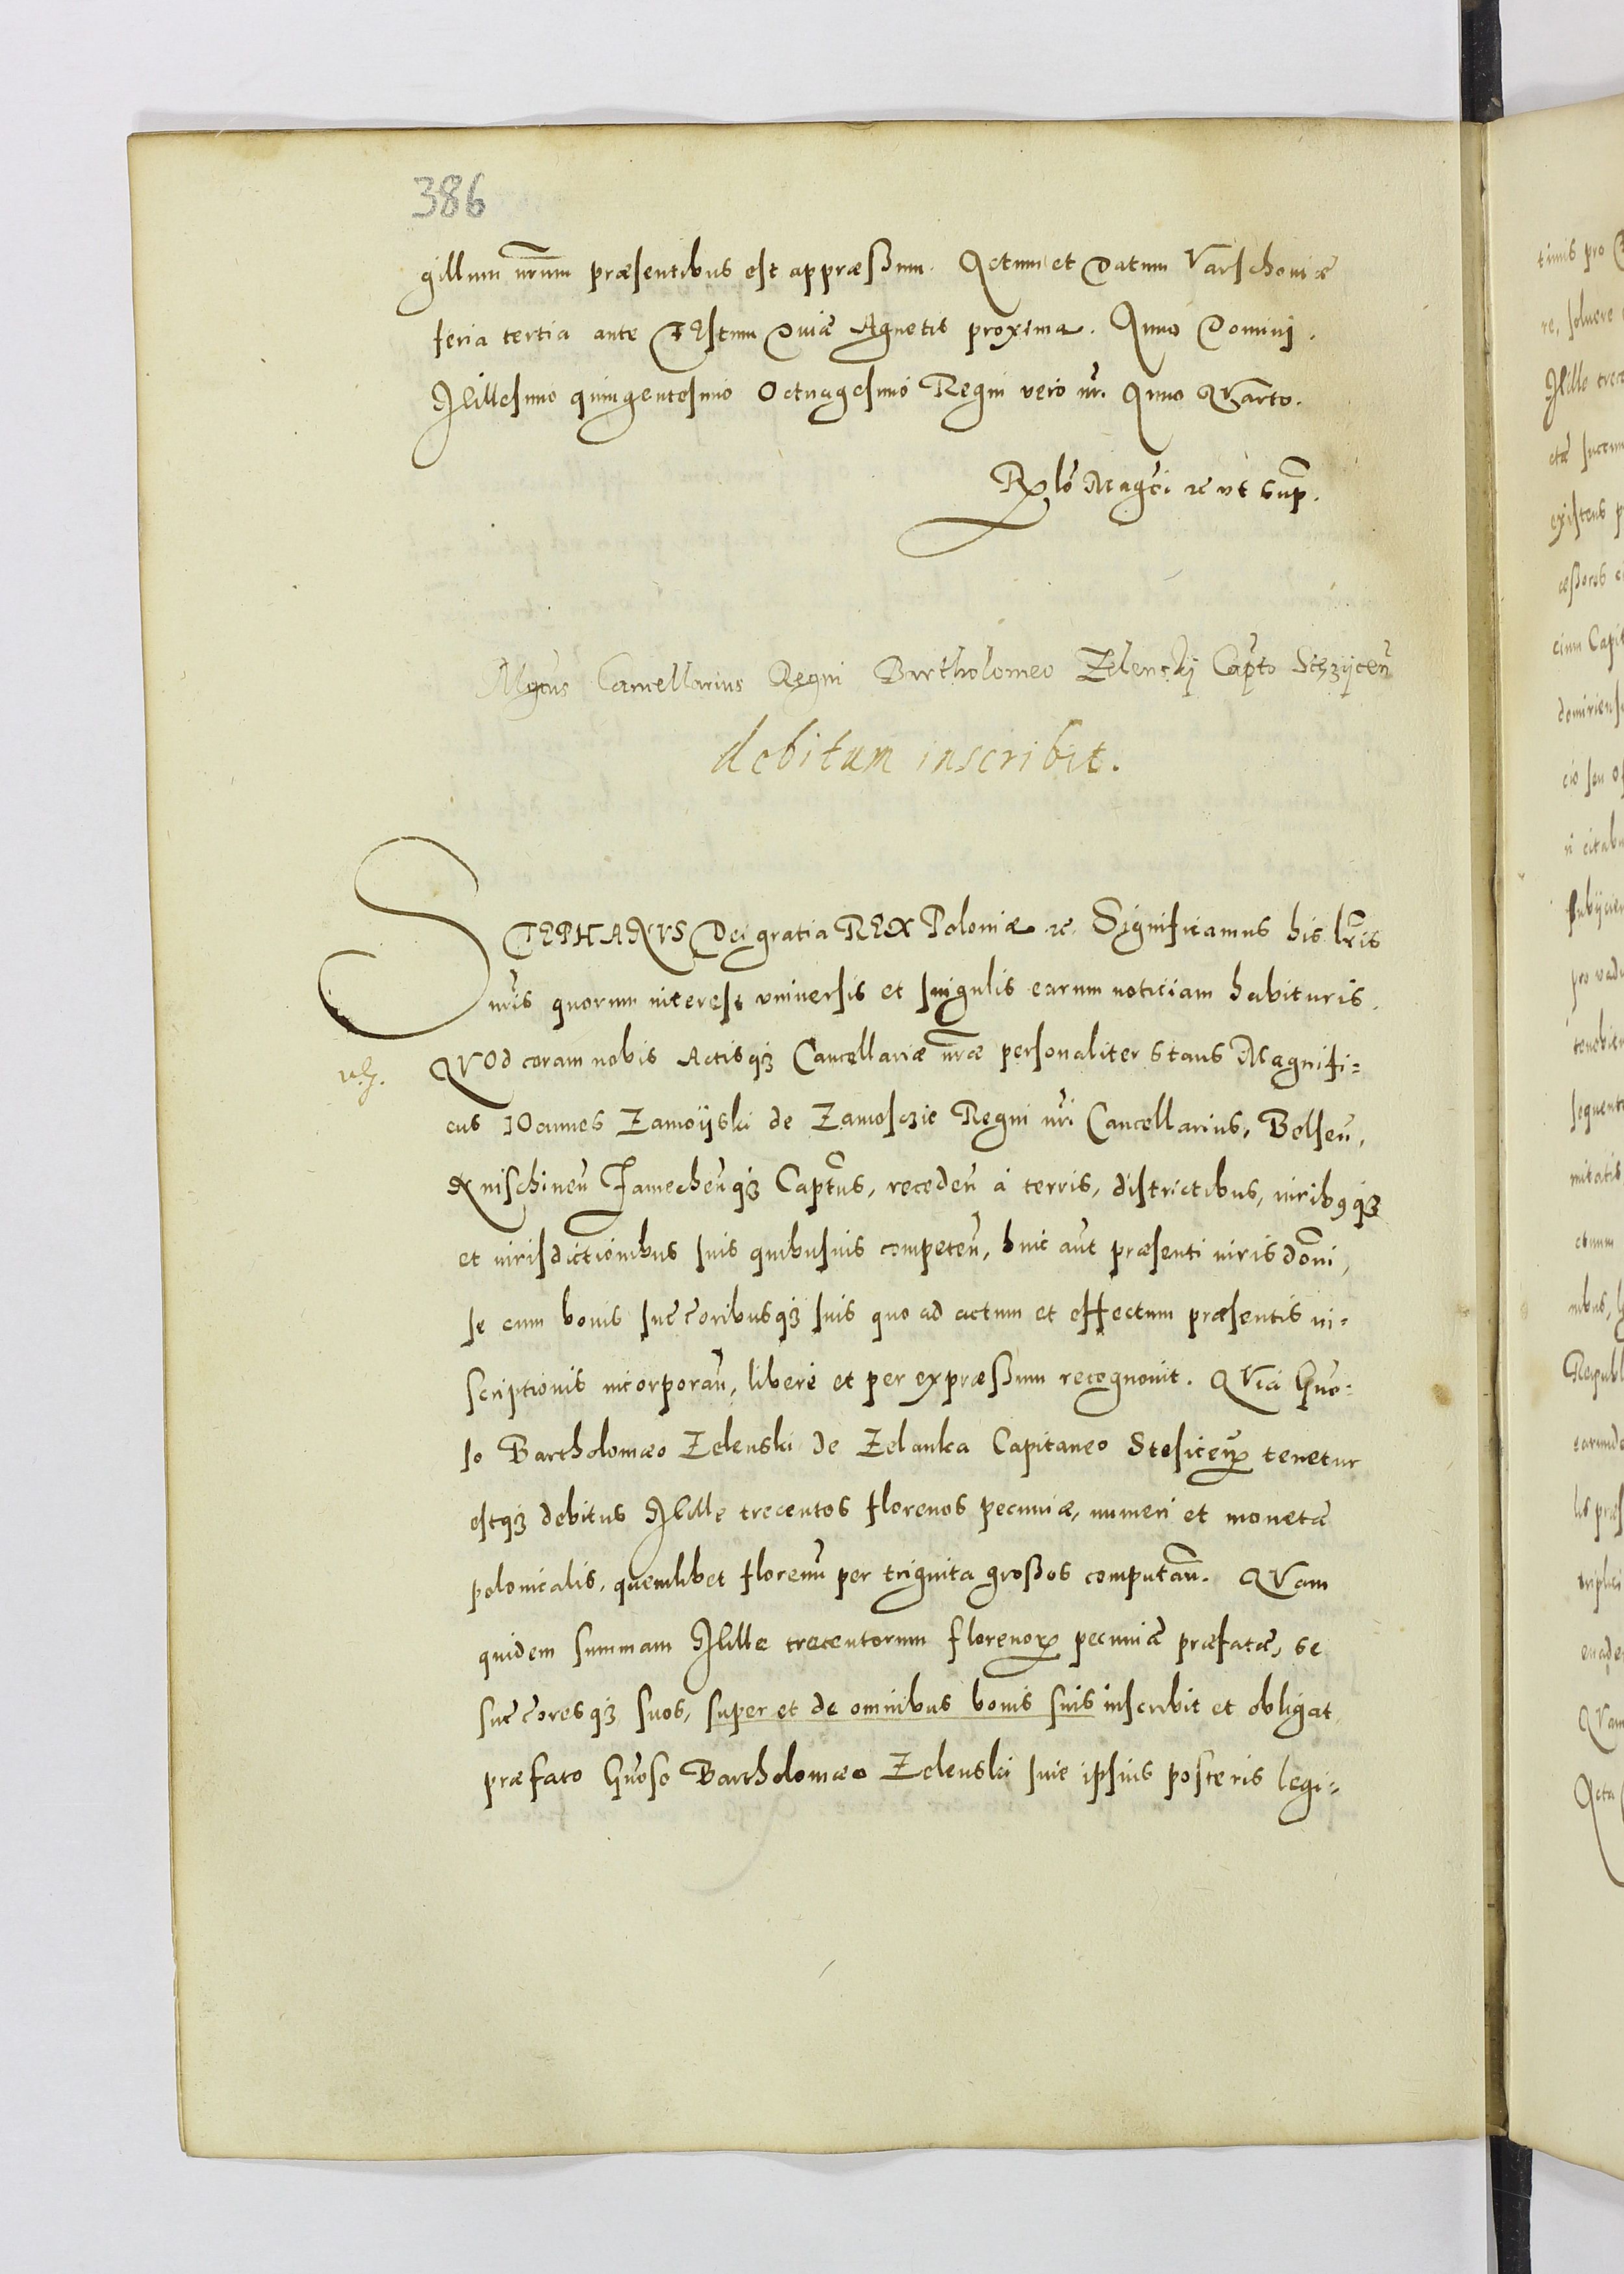 386
gillum nr̃um præsentibus est appræssum. Actum et Datum Varschoviæ
feria tertia ante FEstum Diuæ Agnetis proxima. Anno Domini.
Millesimo quingentesimo Octuagesimo Regni vero nr̃i Anno QVarto.
Rlõ Magci ꝛc vt sup.
Mgcus Cancellarius Regni Bartholomeo Zelenskj Capto Stzyceñ
debitum inscribit.
STEPHANVS Dei gratia REX Poloniæ ꝛc. Significamus his lr̃is
nr̃is quorum interest vniuersis et singulis earum noticiam habituris.
QVOd coram nobis Actisqꝫ Cancellariæ nr̃æ personaliter stans Magnifi=
cus IOannes Zamoÿski de Zamosczie Regni nr̃i Cancellarius, Belseñ,
Knischineñ Zamecheñqꝫ Captus, recedeñ à terris, districtibus, iuribꝰqꝫ
et iurisdictionibus suis quibusuis competeñ, huic aut̃ præsenti iurisdõni,
se cum bonis succ̃oribusqꝫ suis quo ad actum et effectum præsentis in=
scriptionis incorporañ, libere et per expræssum recognouit. QVia Gñro=
so Bartholomæo Zelenski de Zelanka Capitaneo Stesiceñ tenetur
estqꝫ debitus Mille trecentos florenos pecuniæ, numeri et monetæ
polonicalis, quemlibet florenũ per triginta grossos computañ. QVam
quidem summam Mille trecentorum florenoꝝ pecuniæ præfatæ, se
succ̃oresqꝫ suos, super et de omnibus bonis suis inscribit et obligat
præfato Gñroso Bartholomæo Zelenski siue ipsius posteris legi=